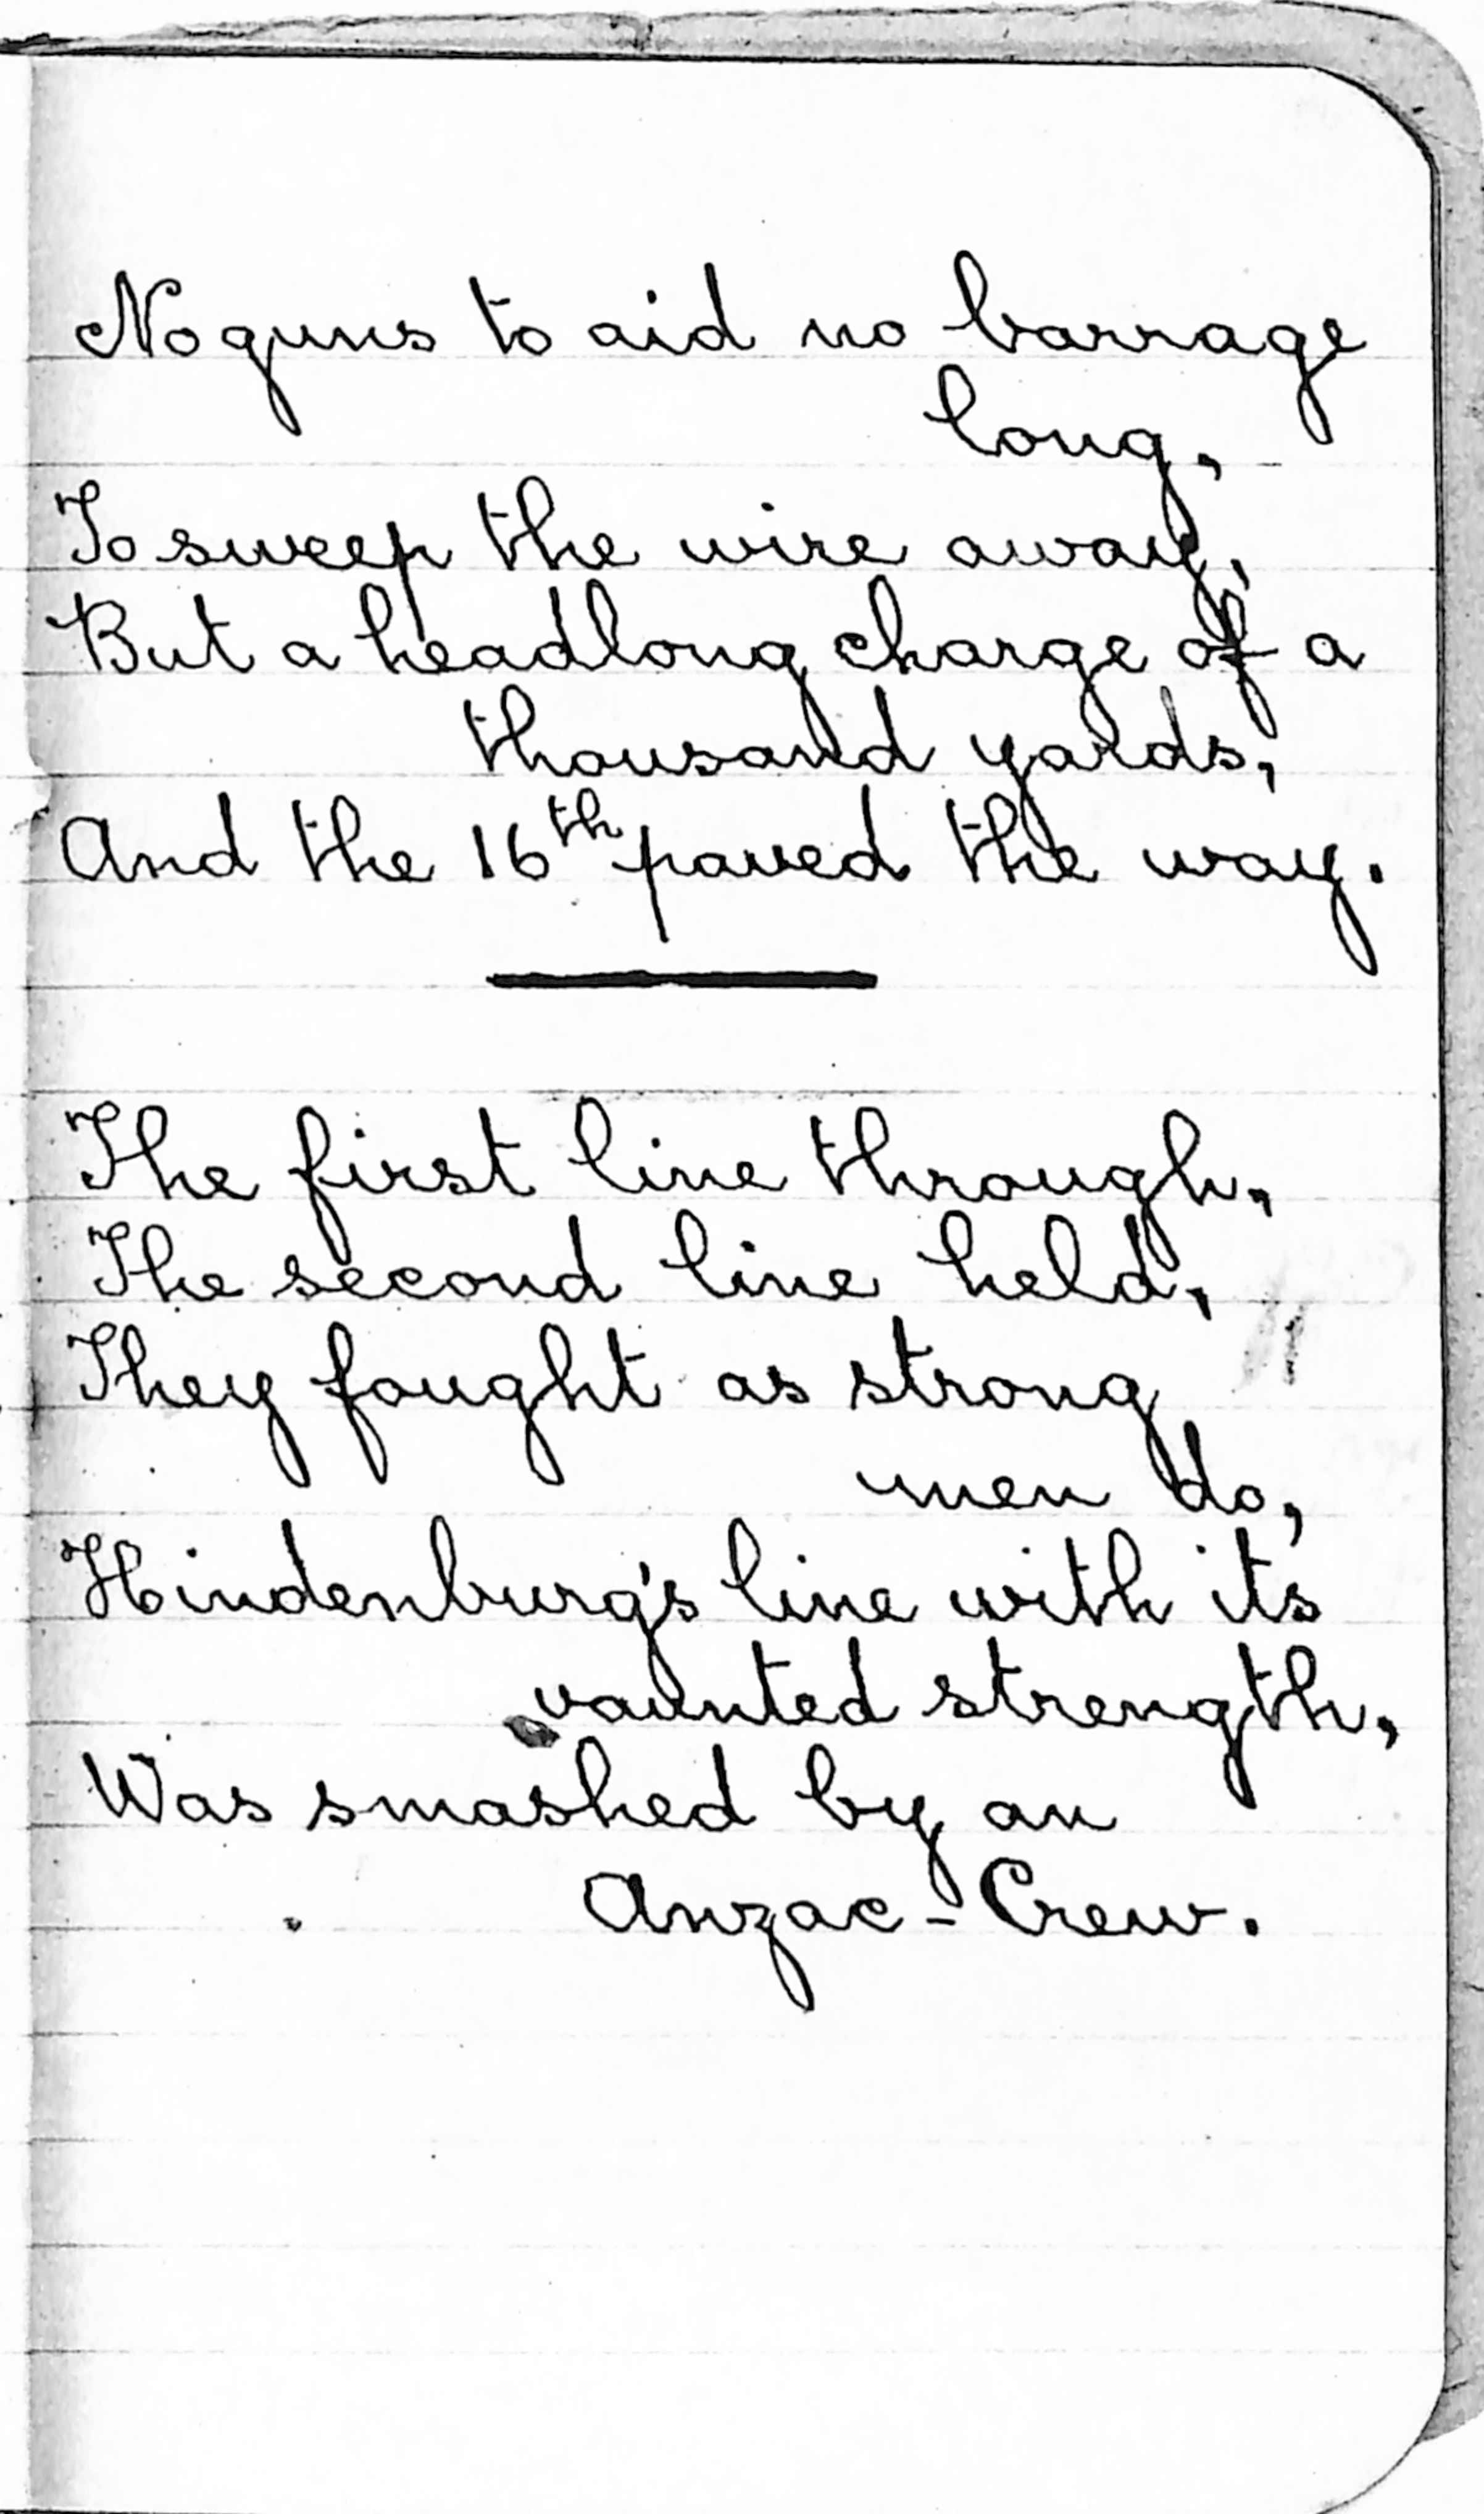 No guns to aid no barrage
long,
To sweep the wire away,
But a headlong charge of a
thousand yards,
And the 16th paved the way.
The first line through,
The second line held,
They fought as strong
men do,
Hindenburg's line with its
vaunted strength,
Was smashed by an
Anzac - Crew.